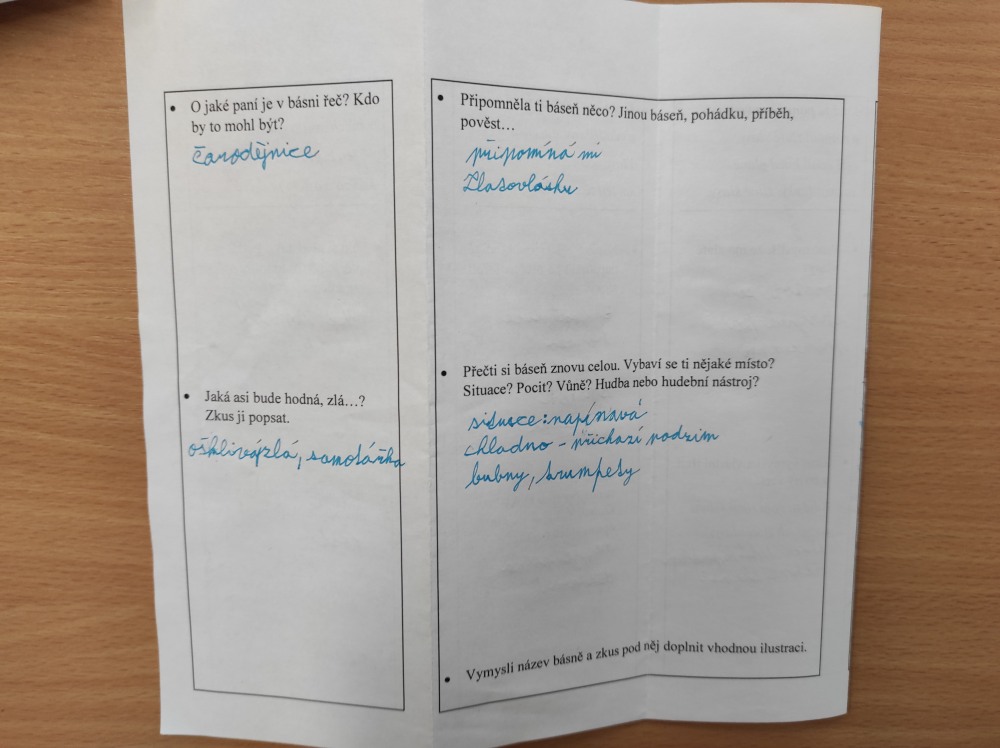 • O jaké paní je v básni řeč? Kdo
by to mohl být?
čarodějnice
• Jaká asi bude hodná, zlá…?
Zkus ji popsat.
ošklivá, zlá, samotářka
• Připomněla ti báseň něco? Jinou báseň, pohádku, příběh,
pověst…
připomíná mi
Zlatovlásku
• Přečti si báseň znovu celou. Vybaví se ti nějaké místo?
Situace? Pocit? Vůně? Hudba nebo hudební nástroj?
situace: napínavá
chladno - přichází podzim
bubny, trumpety
• Vymysli název básně a zkus pod něj doplnit vhodnou ilustraci.